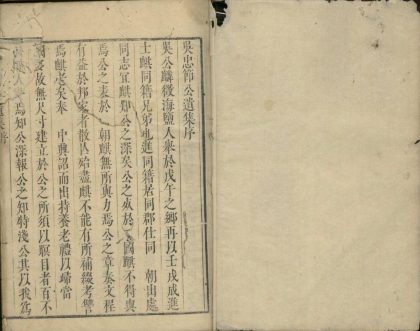 吳忠節公遺集序
吳公麟徵海鹽人舉於戊午之鄉再以壬戌成進
士麟同籍兄弟也進同籍居同郡仕同　朝出處
同志宜麟知公之深矣公之 於　國麟不得與
公之 於　朝麟無所與力焉公之章奏文程
有益於邦家者散佚殆盡麟不能有所補綴考響
焉麟老矣奉　中興詔而出持養老禮以歸當
 故無尺寸建立於公之所須以 目者百不
 焉知公深報公之知特淺公其以我為